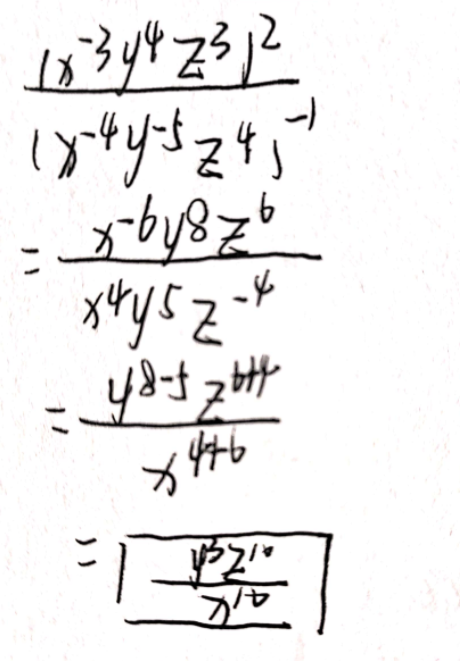 (x^{-3}y^{4}z^{3})^{2}
/ (x^{-4}y^{-5}z^{4})^{-1}
= x^{-6}y^{8}z^{6}
/ x^{4}y^{5}z^{-4}
= y^{8-5}z^{6+4}
/ x^{4+6}
= y^{3}z^{10}
/ x^{10}